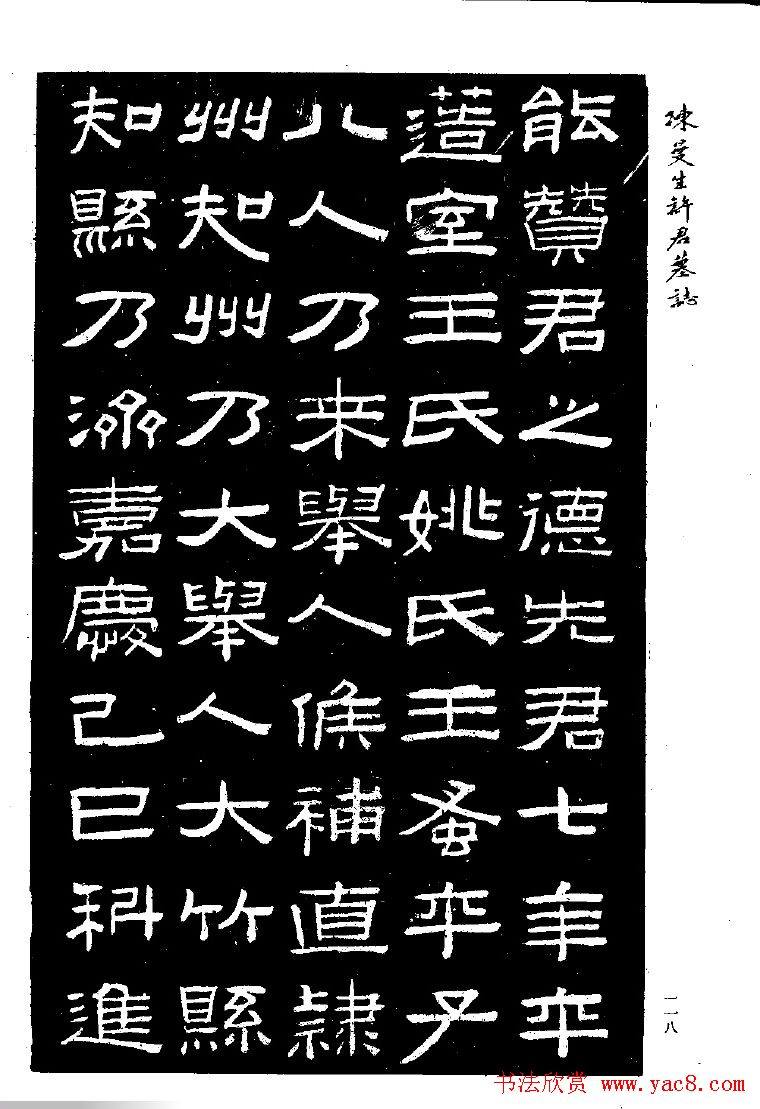 陳曼生許君墓誌
能贊君之德先君七年卒
簉室王氏姚氏王蚤卒子
八人乃来舉人候補直隸
州知州乃大舉人大竹縣
知縣乃濟嘉慶己巳科進
一一八
书法欣赏 www.yac8.com